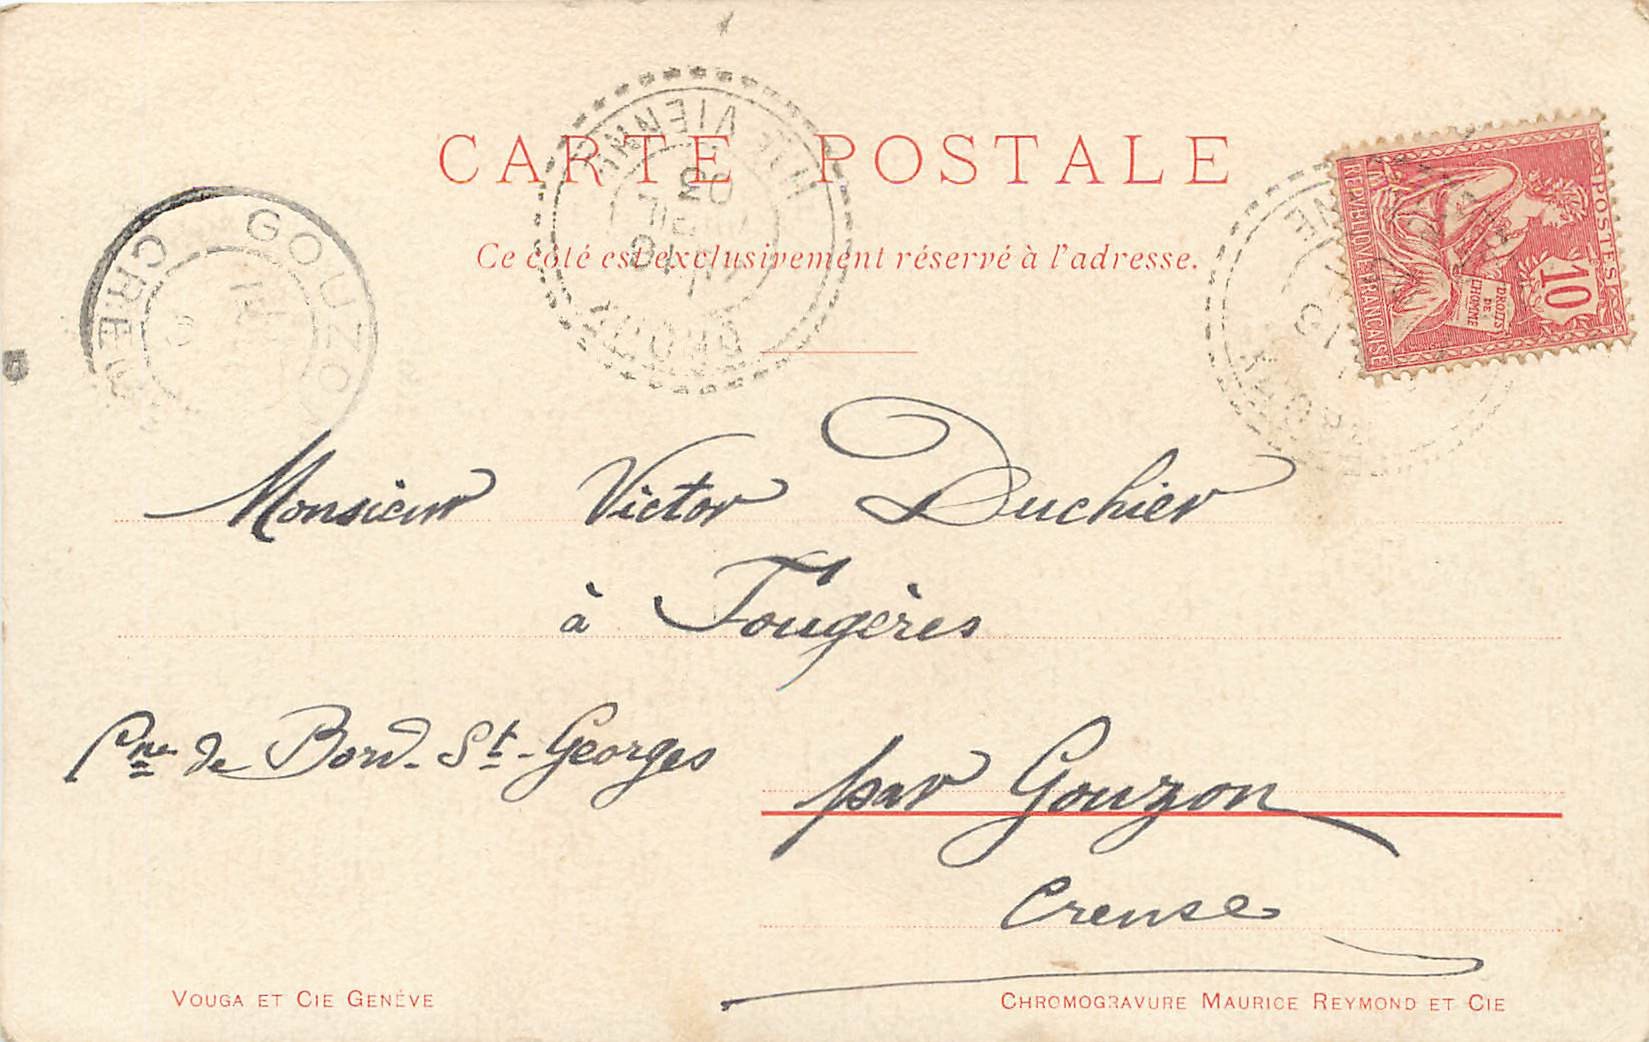 CARTE POSTALE
Ce côté est exclusivement réservé à l'adresse.
GOUZON
CREUSE
HTE VIENNE
10
JUIL
03
POSTES
10
DROITS
DE
L'HOMME
REPUBLIQUE FRANCAISE
Monsieur Victor Duchier
à Fougères
Cne de Bord-St-Georges
par Gouzon
Creuse
VOUGA ET CIE GENÈVE
CHROMOGRAVURE MAURICE REYMOND ET CIE